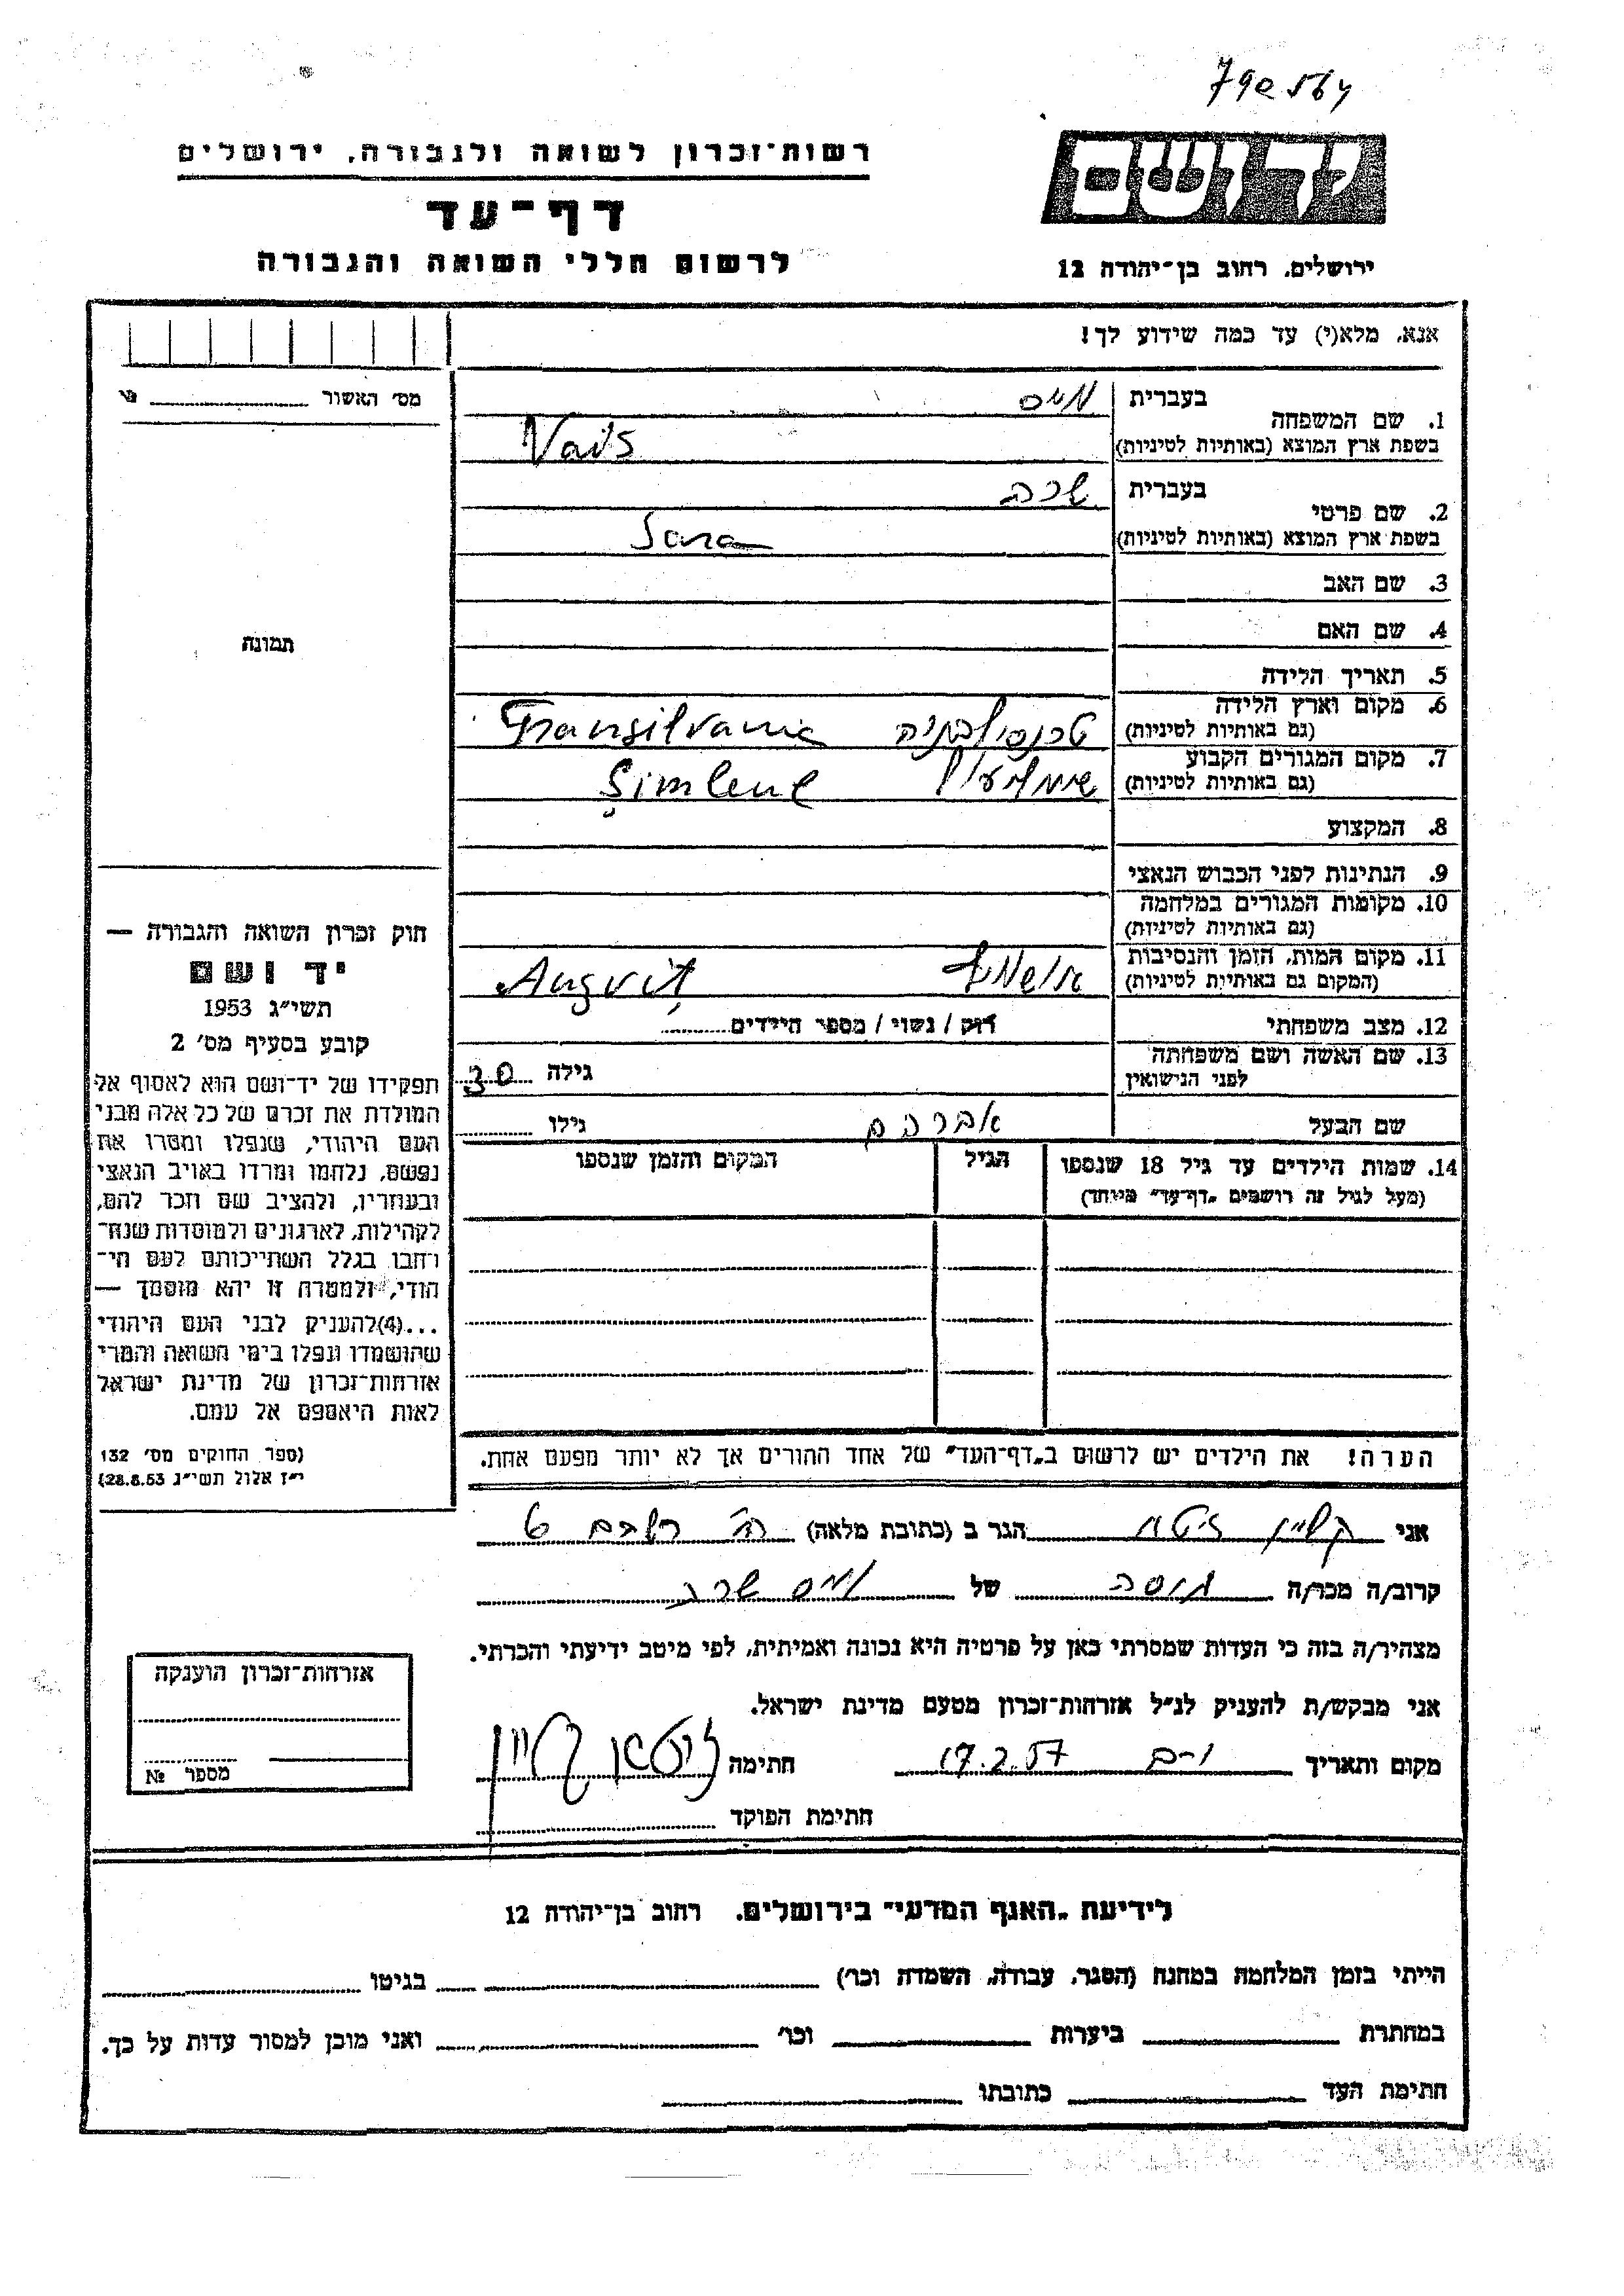 רשות־זכרון לשואה ולגבורה, ירושלים
יד ושם
דף־עד
לרשום חללי השואה והגבורה
ירושלים, רחוב בן־יהודה 12
אנא, מלא(י) עד כמה שידוע לך!
מס' האשור №
1. שם המשפחה בעברית וויס
בשפת ארץ המוצא (באותיות לטיניות) Vais
2. שם פרטי בעברית שרה
בשפת ארץ המוצא (באותיות לטיניות) Sara
3. שם האב
4. שם האם
תמונה
5. תאריך הלידה
6. מקום וארץ הלידה
(גם באותיות לטיניות) טרנסילבניה Transilvania
7. מקום המגורים הקבוע
(גם באותיות לטיניות)
8. המקצוע
9. הנתינות לפני הכבוש הנאצי
10. מקומות המגורים במלחמה
(גם באותיות לטיניות)
11. מקום המות, הזמן והנסיבות
(המקום גם באותיות לטיניות)
12. מצב משפחתי רוק / נשוי / מספר הילדים
13. שם האשה ושם משפחתה
לפני הנישואין גילה 30
שם הבעל אברהם גילו
14. שמות הילדים עד גיל 18 שנספו הגיל המקום והזמן שנספו
(מעל לגיל זה רושמים "דף־עד" מיוחד)
חוק זכרון השואה והגבורה —
יד ושם
תשי״ג 1953
קובע בסעיף מס' 2
תפקידו של יד־ושם הוא לאסוף אל
המולדת את זכרם של כל אלה מבני
העם היהודי, שנפלו ומסרו את
נפשם, נלחמו ומרדו באויב הנאצי
ובעוזריו, ולהציב שם וזכר להם,
לקהילות, לארגונים ולמוסדות שנח־
רחבו בגלל השתייכותם לעם הי־
הודי, ולמטרה זו יהא מוסמך —
...(4)להעניק לבני העם היהודי
שהושמדו ונפלו בימי השואה והמרי
אזרחות־זכרון של מדינת ישראל
לאות היאספם אל עמם.
(ספר החוקים מס' 132
י״ז אלול תשי״ג 28.8.53)
הערה! את הילדים יש לרשום ב"דף־העד" של אחד ההורים אך לא יותר מפעם אחת.
אני הגר ב (כתובת מלאה)
קרוב/ה מכר/ה גיסה של וויס שרה
מצהיר/ה בזה כי העדות שמסרתי כאן על פרטיה היא נכונה ואמיתית, לפי מיטב ידיעתי והכרתי.
אני מבקש/ת להעניק לנ״ל אזרחות־זכרון מטעם מדינת ישראל.
מקום ותאריך 17.2.57 חתימה
חתימת הפוקד
אזרחות־זכרון הוענקה
מספר №
לידיעת "האגף המדעי" בירושלים, רחוב בן־יהודה 12
הייתי בזמן המלחמה במחנה (הסגר, עבודה, השמדה וכו') בגיטו
במחתרת ביערות וכו' ואני מוכן למסור עדות על כך.
חתימת העד כתובתו